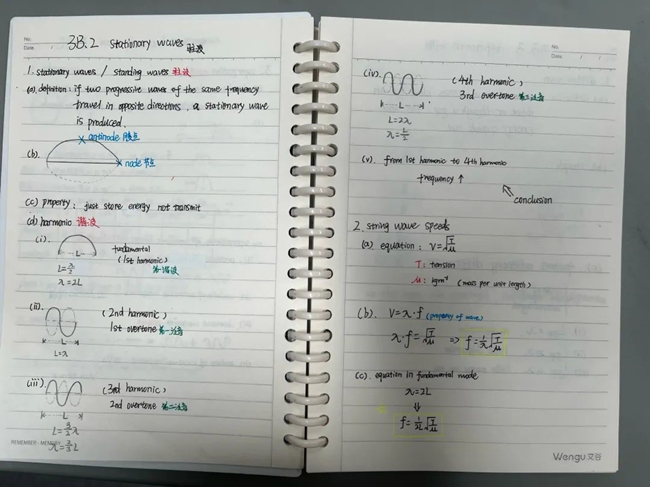 No.
Date
3B.2 stationary waves 驻波
1. stationary waves / standing waves 驻波
(a). definition: if two progressive waves of the same frequency
travel in opposite directions, a stationary wave
is produced.
antinode 腹点
(b).
node 节点
(c) property: just store energy not transmit
(d) harmonic 谐波
(i).
L
fundamental
(1st harmonic)
第一谐波
L=λ/2
λ=2L
(ii)
(2nd harmonic)
1st overtone 第一泛音
L
L=λ
(iii)
(3rd harmonic)
2nd overtone 第二泛音
L
L=3/2λ
λ=2/3L
REMEMBER · MEMORY
No.
Date / /
(iv).
(4th harmonic)
3rd overtone 第三泛音
L
L=2λ
λ=L/2
(v). from 1st harmonic to 4th harmonic
frequency ↑
conclusion
2. string wave speeds
(a) equation: v=√T/μ
T: tension
μ: kgm⁻¹ (mass per unit length)
(b). v=λ·f (property of wave)
λ·f=√T/μ => f=1/λ√T/μ
(c). equation in fundamental mode
λ=2L
⇓
f=1/2L√T/μ
Wengu 文谷